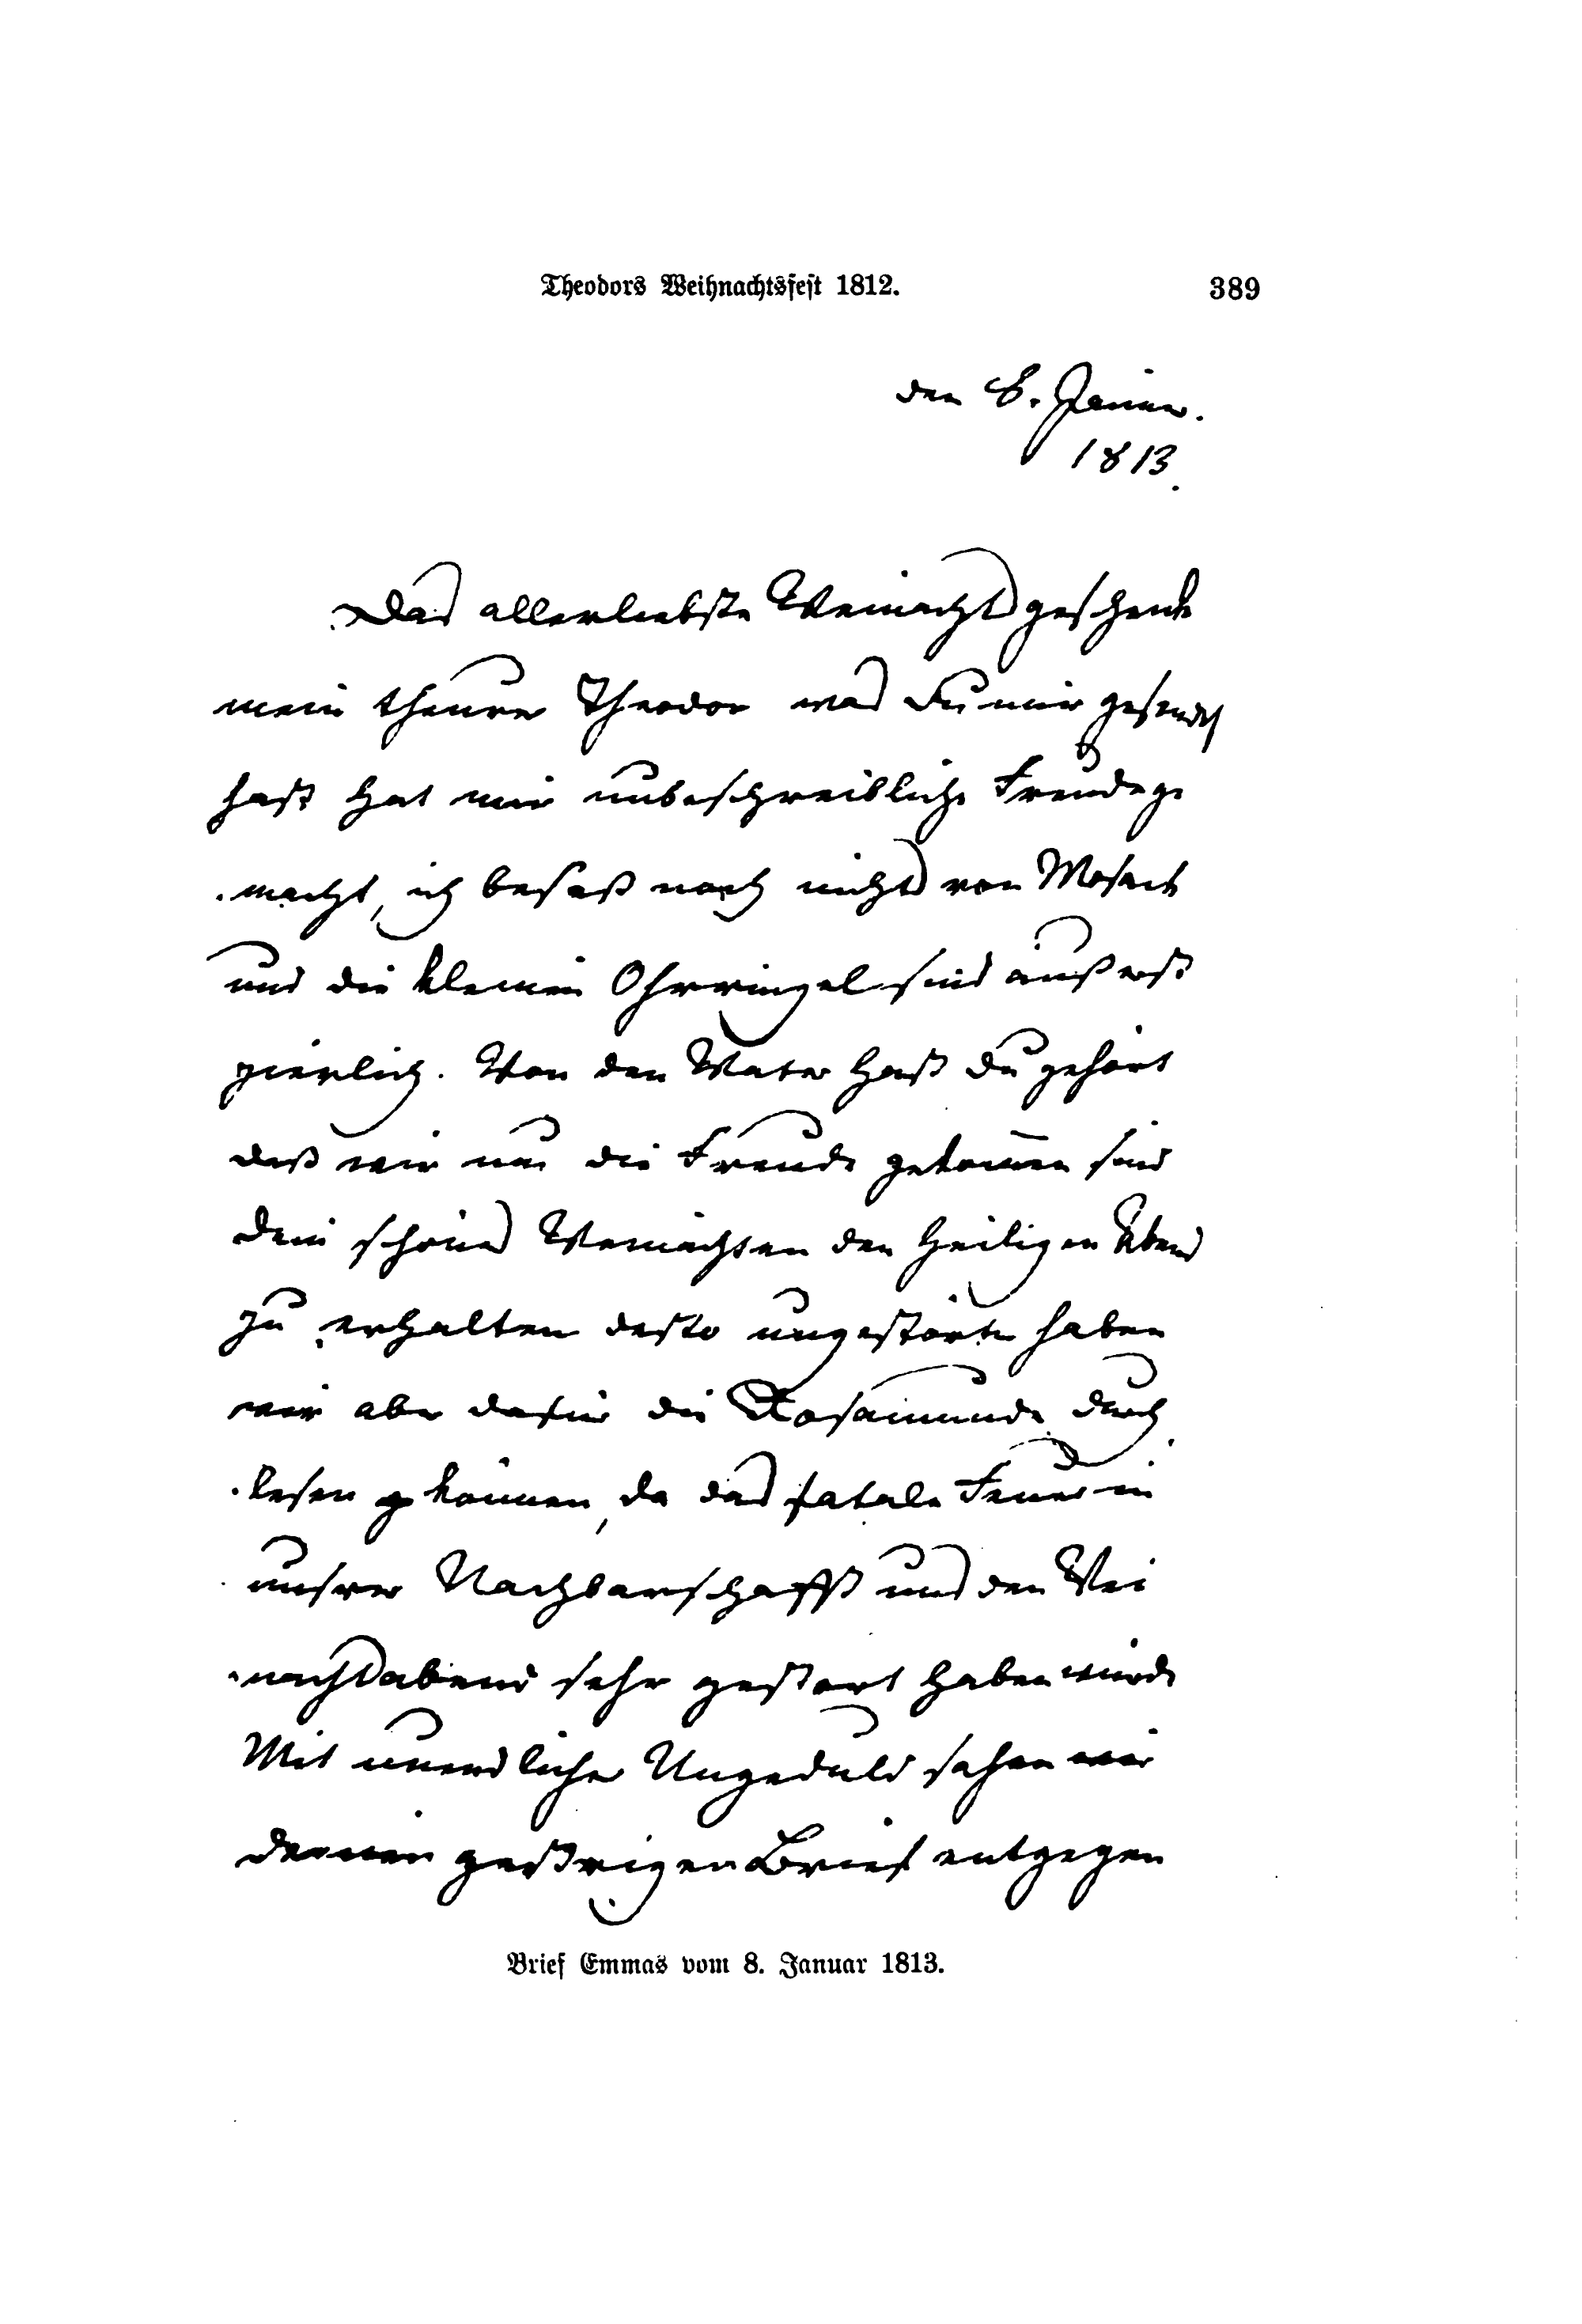 Theodors Weihnachtsfest 1812. 389
den 8. Januar.
1813.
Das allerliebste Weinachtsgeschenk
mein theurer Theodor was Du mir gesendet
hast hat mir unbeschreibliche Freude ge
macht, ich besaß noch nichts von Mosaik
und die kleinen Ohrringel sind äußerst
zierlich. Von den Vater hast du gehört
daß wir um die Freude gekom̄en sind
dein schönes Weinachten den heiligen Abend
zu erhalten desto ungestörter haben
wir aber dafür die Rosamunde durch
lesen können, da das fatale Feuer in
unsrer Nachbarschafft uns den Wei
nachtsabend sehr gestört haben würde
Mit unendlicher Ungeduld sahen wir
deinen gestrigen Brief entgegen
Brief Emmas vom 8. Januar 1813.